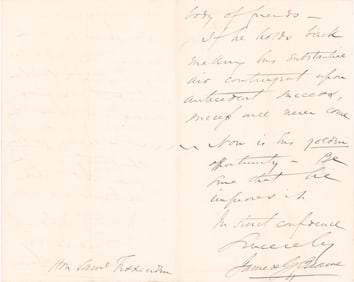 body of friends –
If he holds back
making his substantive
aid contingent upon
antecedent success,
success will never come
Now is his golden
opportunity – Be
sure that he
improves it
In strict confidence
Sincerely
James G Blaine
Hon Saml Fessenden